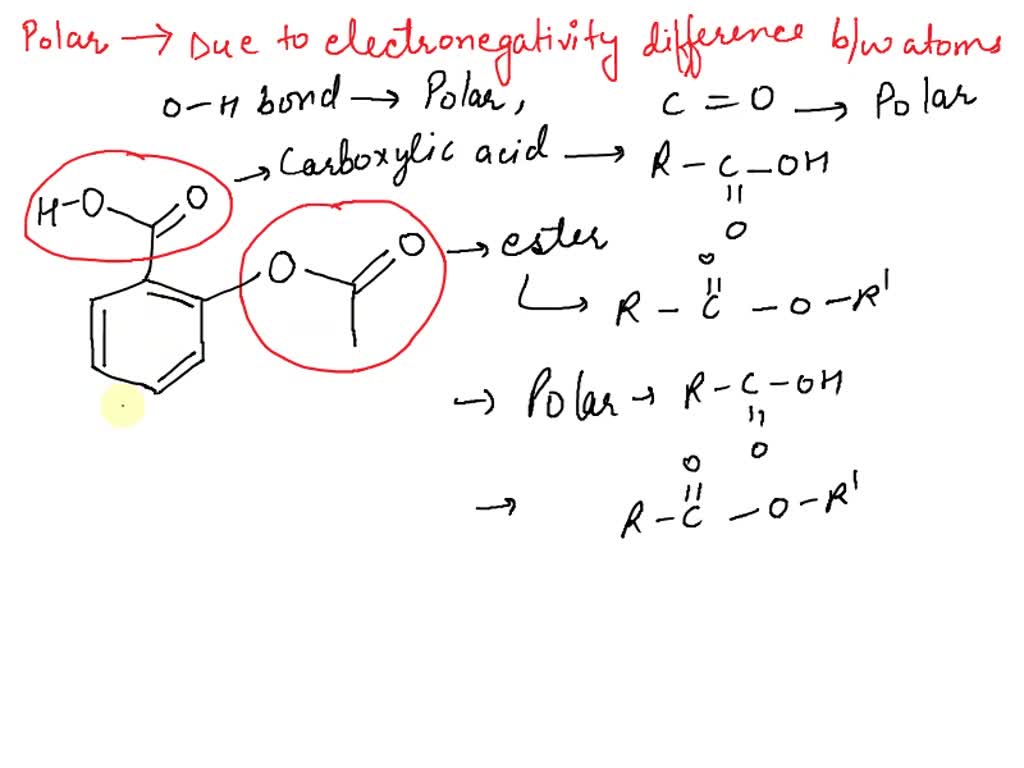 Polar → Due to electronegativity difference b/w atoms
O-H bond → Polar, C=O → Polar
→ Carboxylic acid → R-C-OH
||
O
H-O O
O O → ester
O
||
R - C - O - R'
→ Polar → R-C-OH
||
O
O
||
→ R-C - O-R'